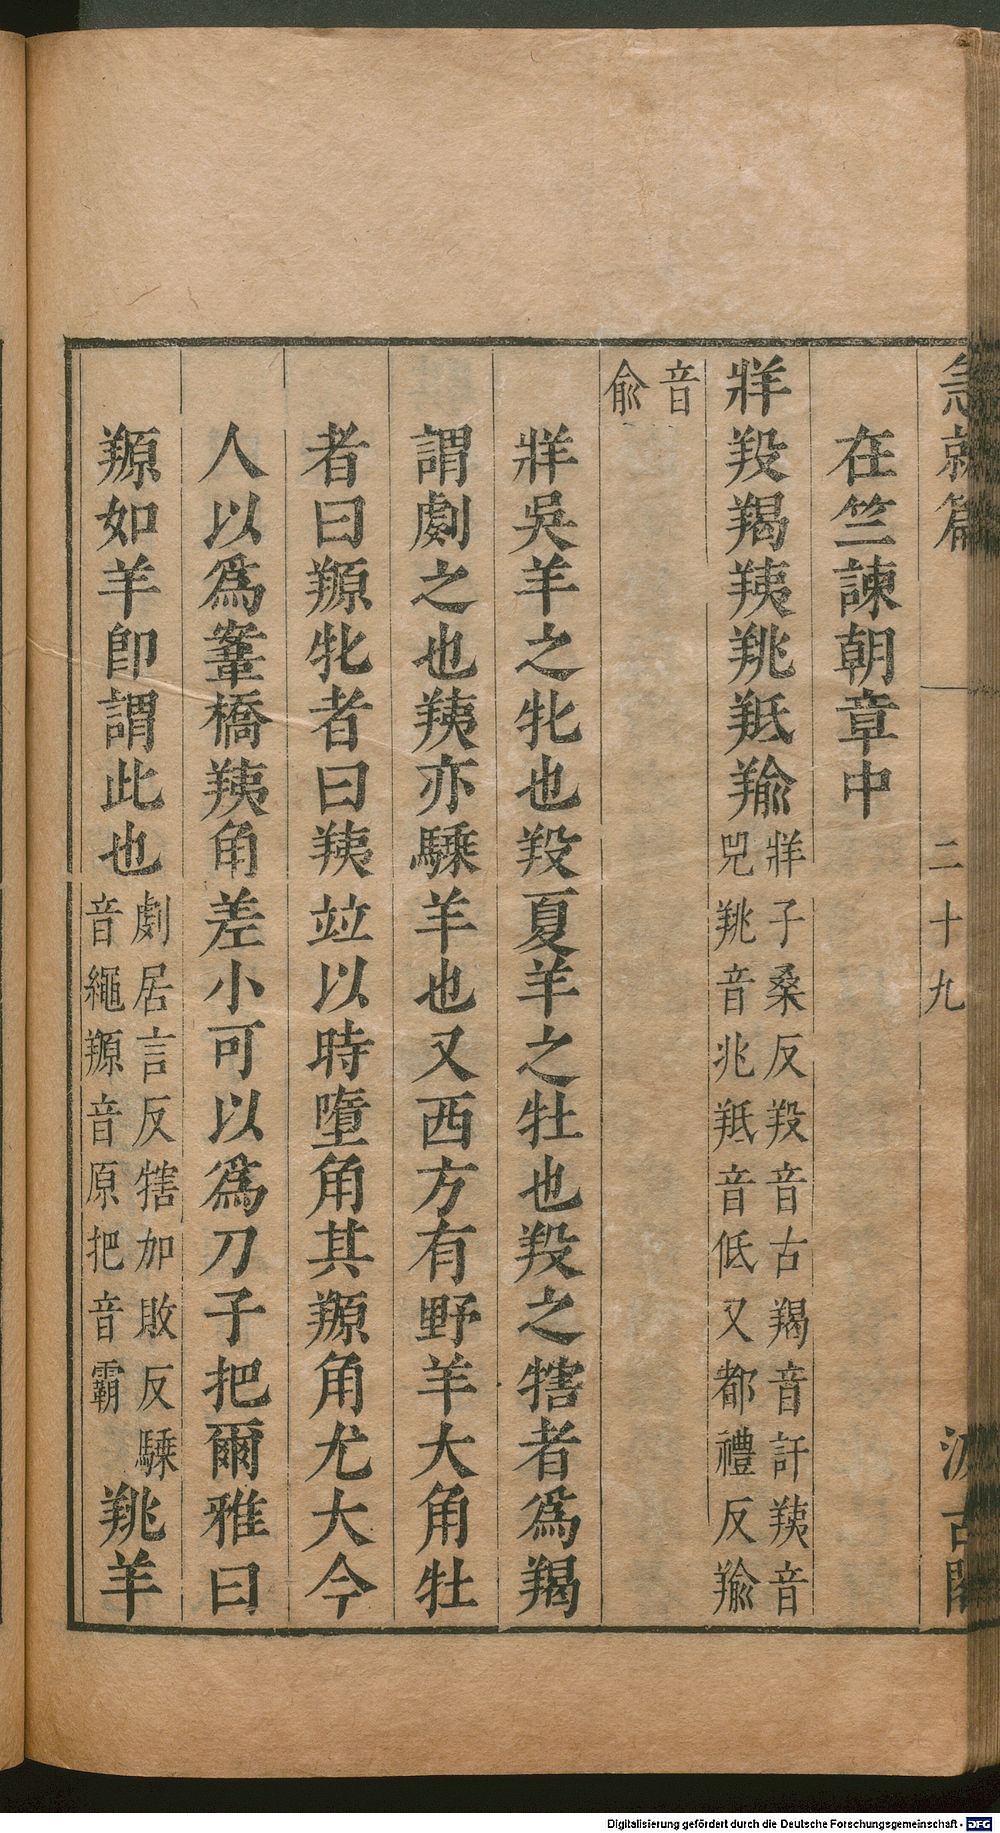 急就篇 二十九 汲古閣
在竺諫朝章中
牂羖羯羠羜羝羭牂子桑反羖音古羯音訐羠音
兕羜音兆羝音低又都禮反羭
音
兪
牂吳羊之牝也羖夏羊之牡也羖之犗者爲羯
謂劇之也羠亦騬羊也又西方有野羊大角牡
者曰羱牝者曰羠竝以時墮角其羱角尤大今
人以爲鞌橋羠角差小可以爲刀子把爾雅曰
羱如羊卽謂此也劇居言反犗加敗反騬
音繩羱音原把音霸
羊